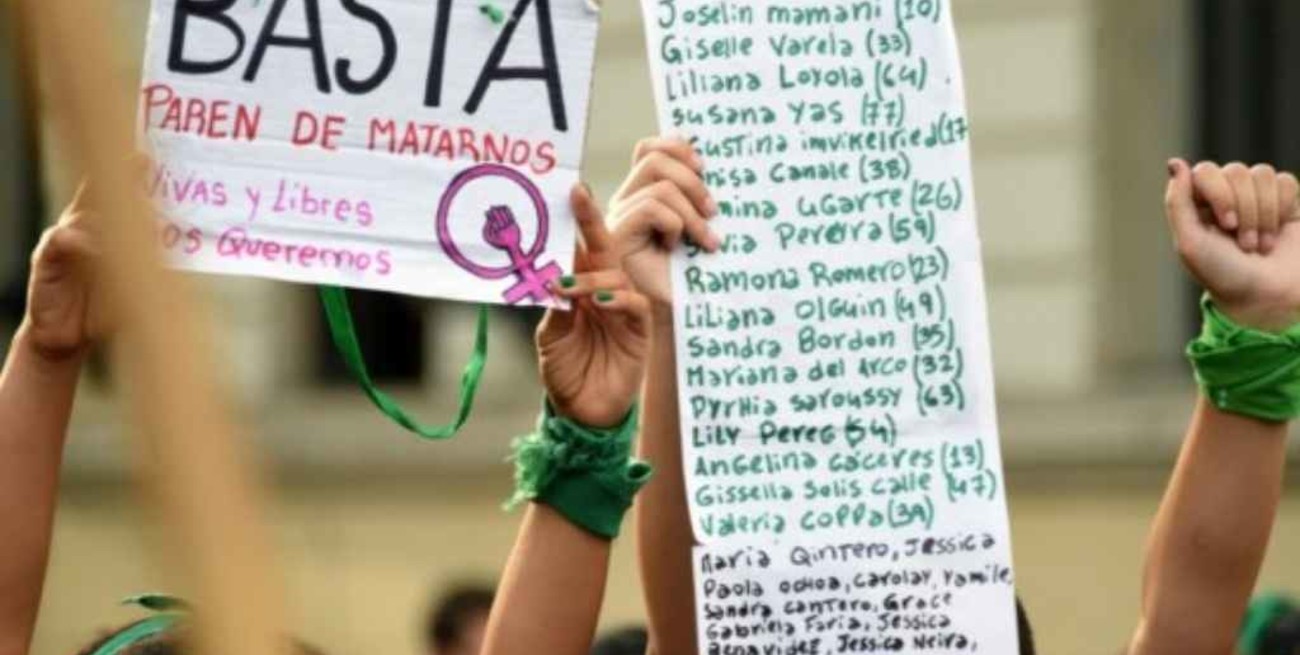 BASTA
PAREN DE MATARNOS
Vivas y Libres
Queremos
Joselin mamani (10)
Giselle Varela (33)
Liliana Loyola (64)
susana Yas (77)
imvikelried (17
Canale (38)
UGarte (26)
Pereyra (59)
Ramona Romero (23)
Liliana Olguin (49)
Sandra Bordon (35)
Mariana del Arco (32)
Pyrhia saroussy (63)
Lily Peres (54)
Angelina caceres (13)
Gissella Solis calle (47)
Valeria coppa (39)
Maria Qintero, Jessica
Paola Ochoa, Carolay, Yamile
Sandra cantero, Grace
Gabriela Faria, Jessica
Benavidez, Jessica Neira,